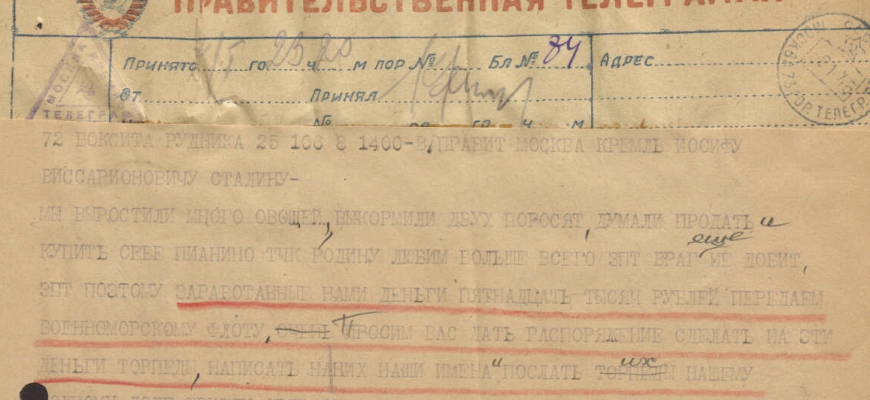 ПРАВИТЕЛЬСТВЕННАЯ ТЕЛЕГРАММА
Принято го 23 ч 20 м пор № Бл № 84 Адрес
От Принял
№ го ч м
МОСКВА
ТЕЛЕГР
72 БОКСИТА РУДНИКА 25 106 8 1400-В/ПРАВИТ МОСКВА КРЕМЛЬ ИОСИФУ
ВИССАРИОНОВИЧУ СТАЛИНУ-
МЫ ВЫРОСТИЛИ МНОГО ОВОЩЕЙ, ВЫКОРМИЛИ ДВУХ ПОРОСЯТ, ДУМАЛИ ПРОДАТЬ и
еще
КУПИТЬ СЕБЕ ПИАНИНО ТЧК РОДИНУ ЛЮБИМ БОЛЬШЕ ВСЕГО ЗПТ ВРАГ НЕ ДОБИТ,
ЗПТ ПОЭТОМУ ЗАРАБОТАННЫЕ НАМИ ДЕНЬГИ ПЯТНАДЦАТЬ ТЫСЯЧ РУБЛЕЙ ПЕРЕДАЕМ
ВОЕННОМОРСКОМУ ФЛОТУ, ПРОСИМ ВАС ДАТЬ РАСПОРЯЖЕНИЕ СДЕЛАТЬ НА ЭТИ
их
ДЕНЬГИ ТОРПЕДЫ, НАПИСАТЬ НАНИХ НАШИ ИМЕНА" ПОСЛАТЬ ТОРПЕДЫ НАШЕМУ